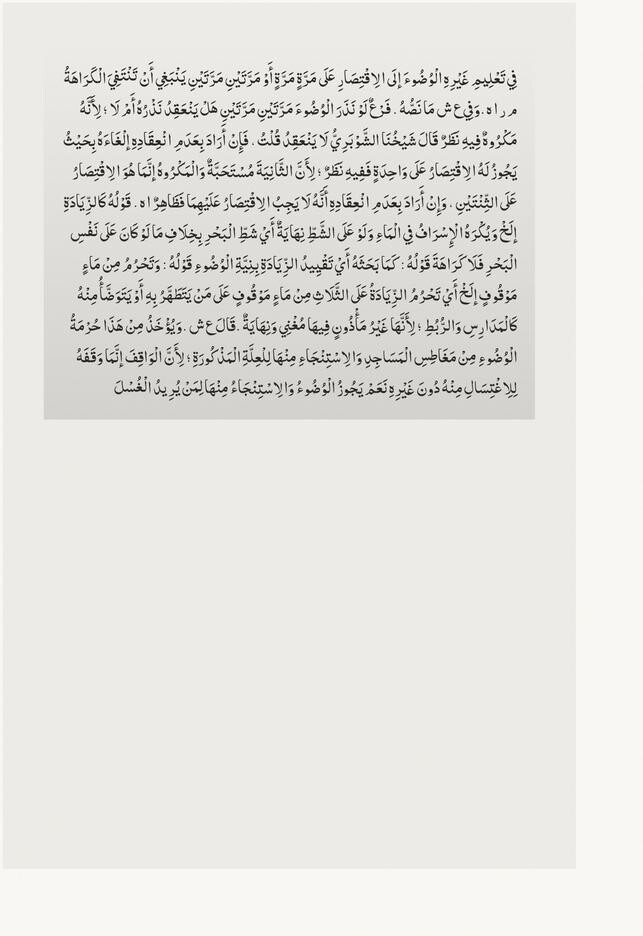 فِي تَعْلِيمِ غَيْرِهِ الْوُضُوءَ إِلَى الِاقْتِصَارِ عَلَى مَرَّةٍ مَرَّةٍ أَوْ مَرَّتَيْنِ مَرَّتَيْنِ يَنْبَغِي أَنْ تَنْتَفِيَ الْكَرَاهَةُ
م ر ا ه . وَفِي ع ش مَا نَصُّهُ . فَرْعٌ لَوْ نَذَرَ الْوُضُوءَ مَرَّتَيْنِ مَرَّتَيْنِ هَلْ يَنْعَقِدُ نَذْرُهُ أَمْ لَا ؛ لِأَنَّهُ
مَكْرُوهٌ فِيهِ نَظَرٌ قَالَ شَيْخُنَا الشَّوْبَرِيُّ لَا يَنْعَقِدُ قُلْتُ . فَإِنْ أَرَادَ بِعَدَمِ انْعِقَادِهِ إِلْغَاءَهُ بِحَيْثُ
يَجُوزُ لَهُ الِاقْتِصَارُ عَلَى وَاحِدَةٍ فَفِيهِ نَظَرٌ ؛ لِأَنَّ الثَّانِيَةَ مُسْتَحَبَّةٌ وَالْمَكْرُوهُ إِنَّمَا هُوَ الِاقْتِصَارُ
عَلَى الثِّنْتَيْنِ . وَإِنْ أَرَادَ بِعَدَمِ انْعِقَادِهِ أَنَّهُ لَا يَجِبُ الِاقْتِصَارُ عَلَيْهِمَا فَظَاهِرٌ ا ه . قَوْلُهُ كَالزِّيَادَةِ
إِلَخْ وَيُكْرَهُ الْإِسْرَافُ فِي الْمَاءِ وَلَوْ عَلَى الشَّطِّ نِهَايَةٌ أَيْ شَطِّ الْبَحْرِ بِخِلَافِ مَا لَوْ كَانَ عَلَى نَفْسِ
الْبَحْرِ فَلَا كَرَاهَةَ قَوْلُهُ : كَمَا بَحَثَهُ أَيْ تَقْيِيدُ الزِّيَادَةِ بِنِيَّةِ الْوُضُوءِ قَوْلُهُ : وَتَحْرُمُ مِنْ مَاءٍ
مَوْقُوفٍ إِلَخْ أَيْ تَحْرُمُ الزِّيَادَةُ عَلَى الثَّلَاثِ مِنْ مَاءٍ مَوْقُوفٍ عَلَى مَنْ يَتَطَهَّرُ بِهِ أَوْ يَتَوَضَّأُ مِنْهُ
كَالْمَدَارِسِ وَالرُّبُطِ ؛ لِأَنَّهَا غَيْرُ مَأْذُونٍ فِيهَا مُغْنِي وَنِهَايَةٌ . قَالَ ع ش . وَيُؤْخَذُ مِنْ هَذَا حُرْمَةُ
الْوُضُوءِ مِنْ مَغَاطِسِ الْمَسَاجِدِ وَالِاسْتِنْجَاءِ مِنْهَا لِلْعِلَّةِ الْمَذْكُورَةِ ؛ لِأَنَّ الْوَاقِفَ إِنَّمَا وَقَفَهُ
لِلِاغْتِسَالِ مِنْهُ دُونَ غَيْرِهِ نَعَمْ يَجُوزُ الْوُضُوءُ وَالِاسْتِنْجَاءُ مِنْهَا لِمَنْ يُرِيدُ الْغُسْلَ